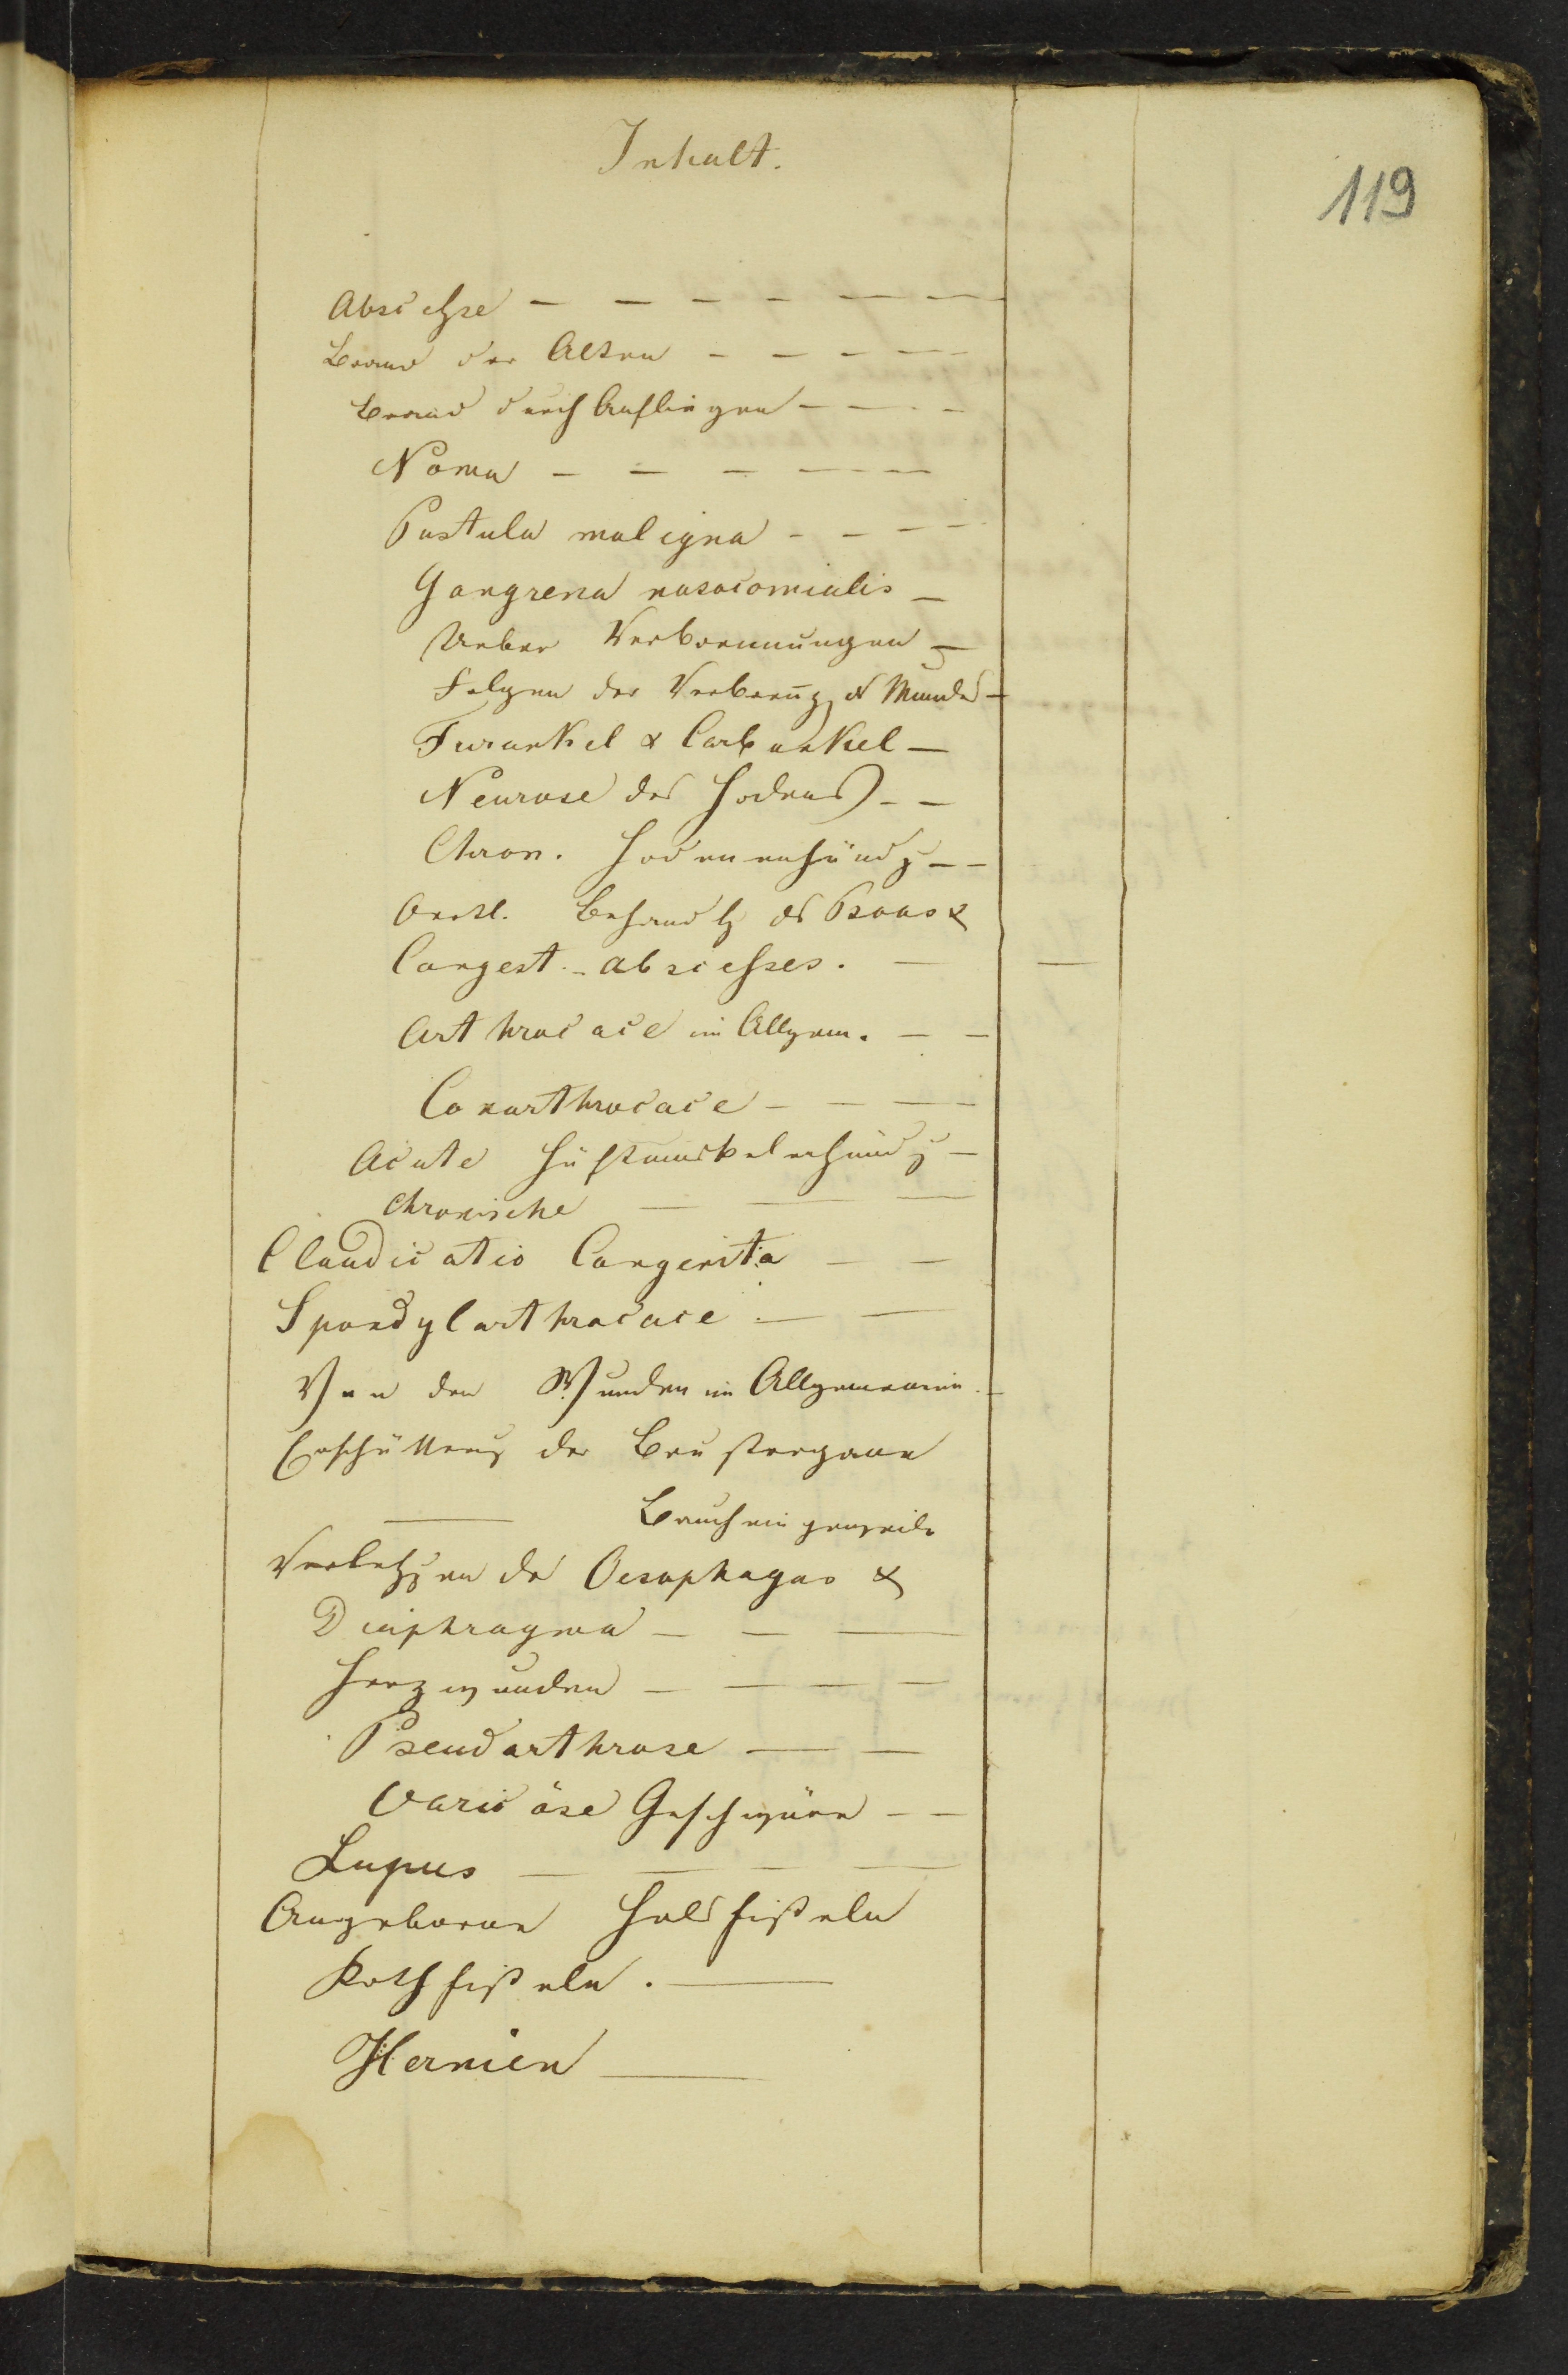 Inhalt.
119
Abscehse — — — — — —
Brand der Alten — — — —
Brand durch Aufliegen — — —
Noma — — — — —
Pustula maligna — — — —
Gangrena nosocomialis —
Ueber Verbrennungen —
Folgen der Verbreng d Mundes —
Furunkel & Carbunkel —
Neurose des Hodens — —
Chron. Hodenenzündg — —
Oertl. Behandlg ds Psoas &
Congest. - abscesses. —
Arthrocace im Allgem. — —
Coxarthrocace — — — —
Acute Hüftmuskelenzündg —
chronische — — —
Claudicatio Congenita — —
Spondylarthrocace — —
Von den Wunden im Allgemeinen. —
Erschütterug der Brustorgane
— Baucheingeweide
Verletzgen des Oesophagus &
Diaphragma — — —
Herzwunden — — — —
Pseudarthrose — —
Varicöse Geschwüre — —
Lupus — — — —
Angeborene Halsfisteln
Kothfisteln. —
Hernien —